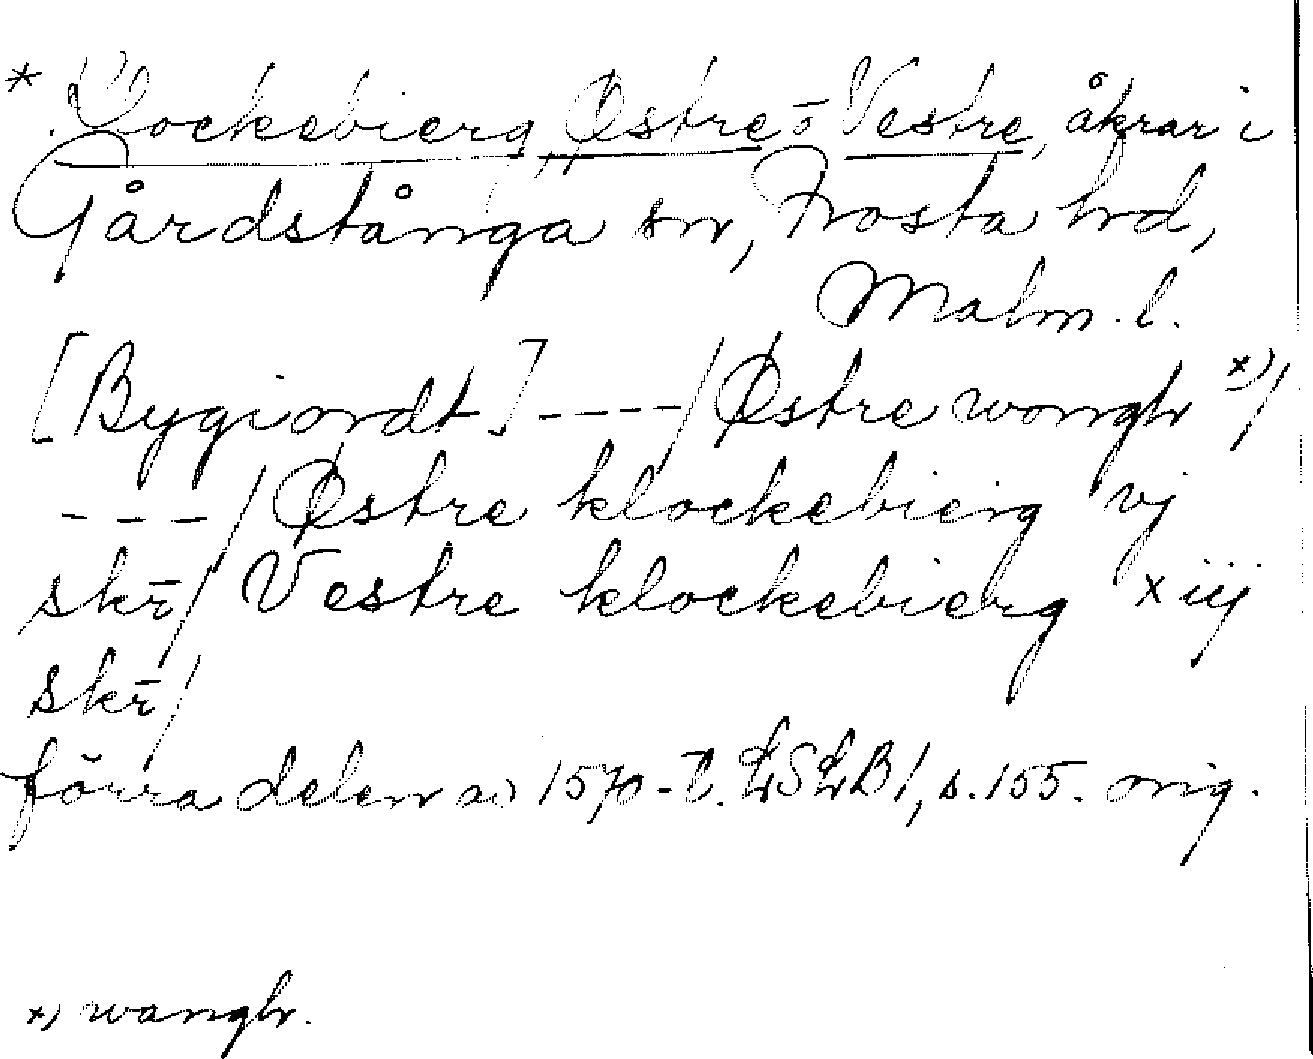 * Lockebierg, Østre o Vestre, åkrar i
Gårdstånga sn, Frosta hd,
Malm. l.
[Bygiordt] ----/Østre wongh x)/
---/Østre klockebierg vj
skr̄/ Vestre klockebierg xiij
skr̄/
förra delen av 1570-t. LSLB1, s. 155. orig.
x) wangh.